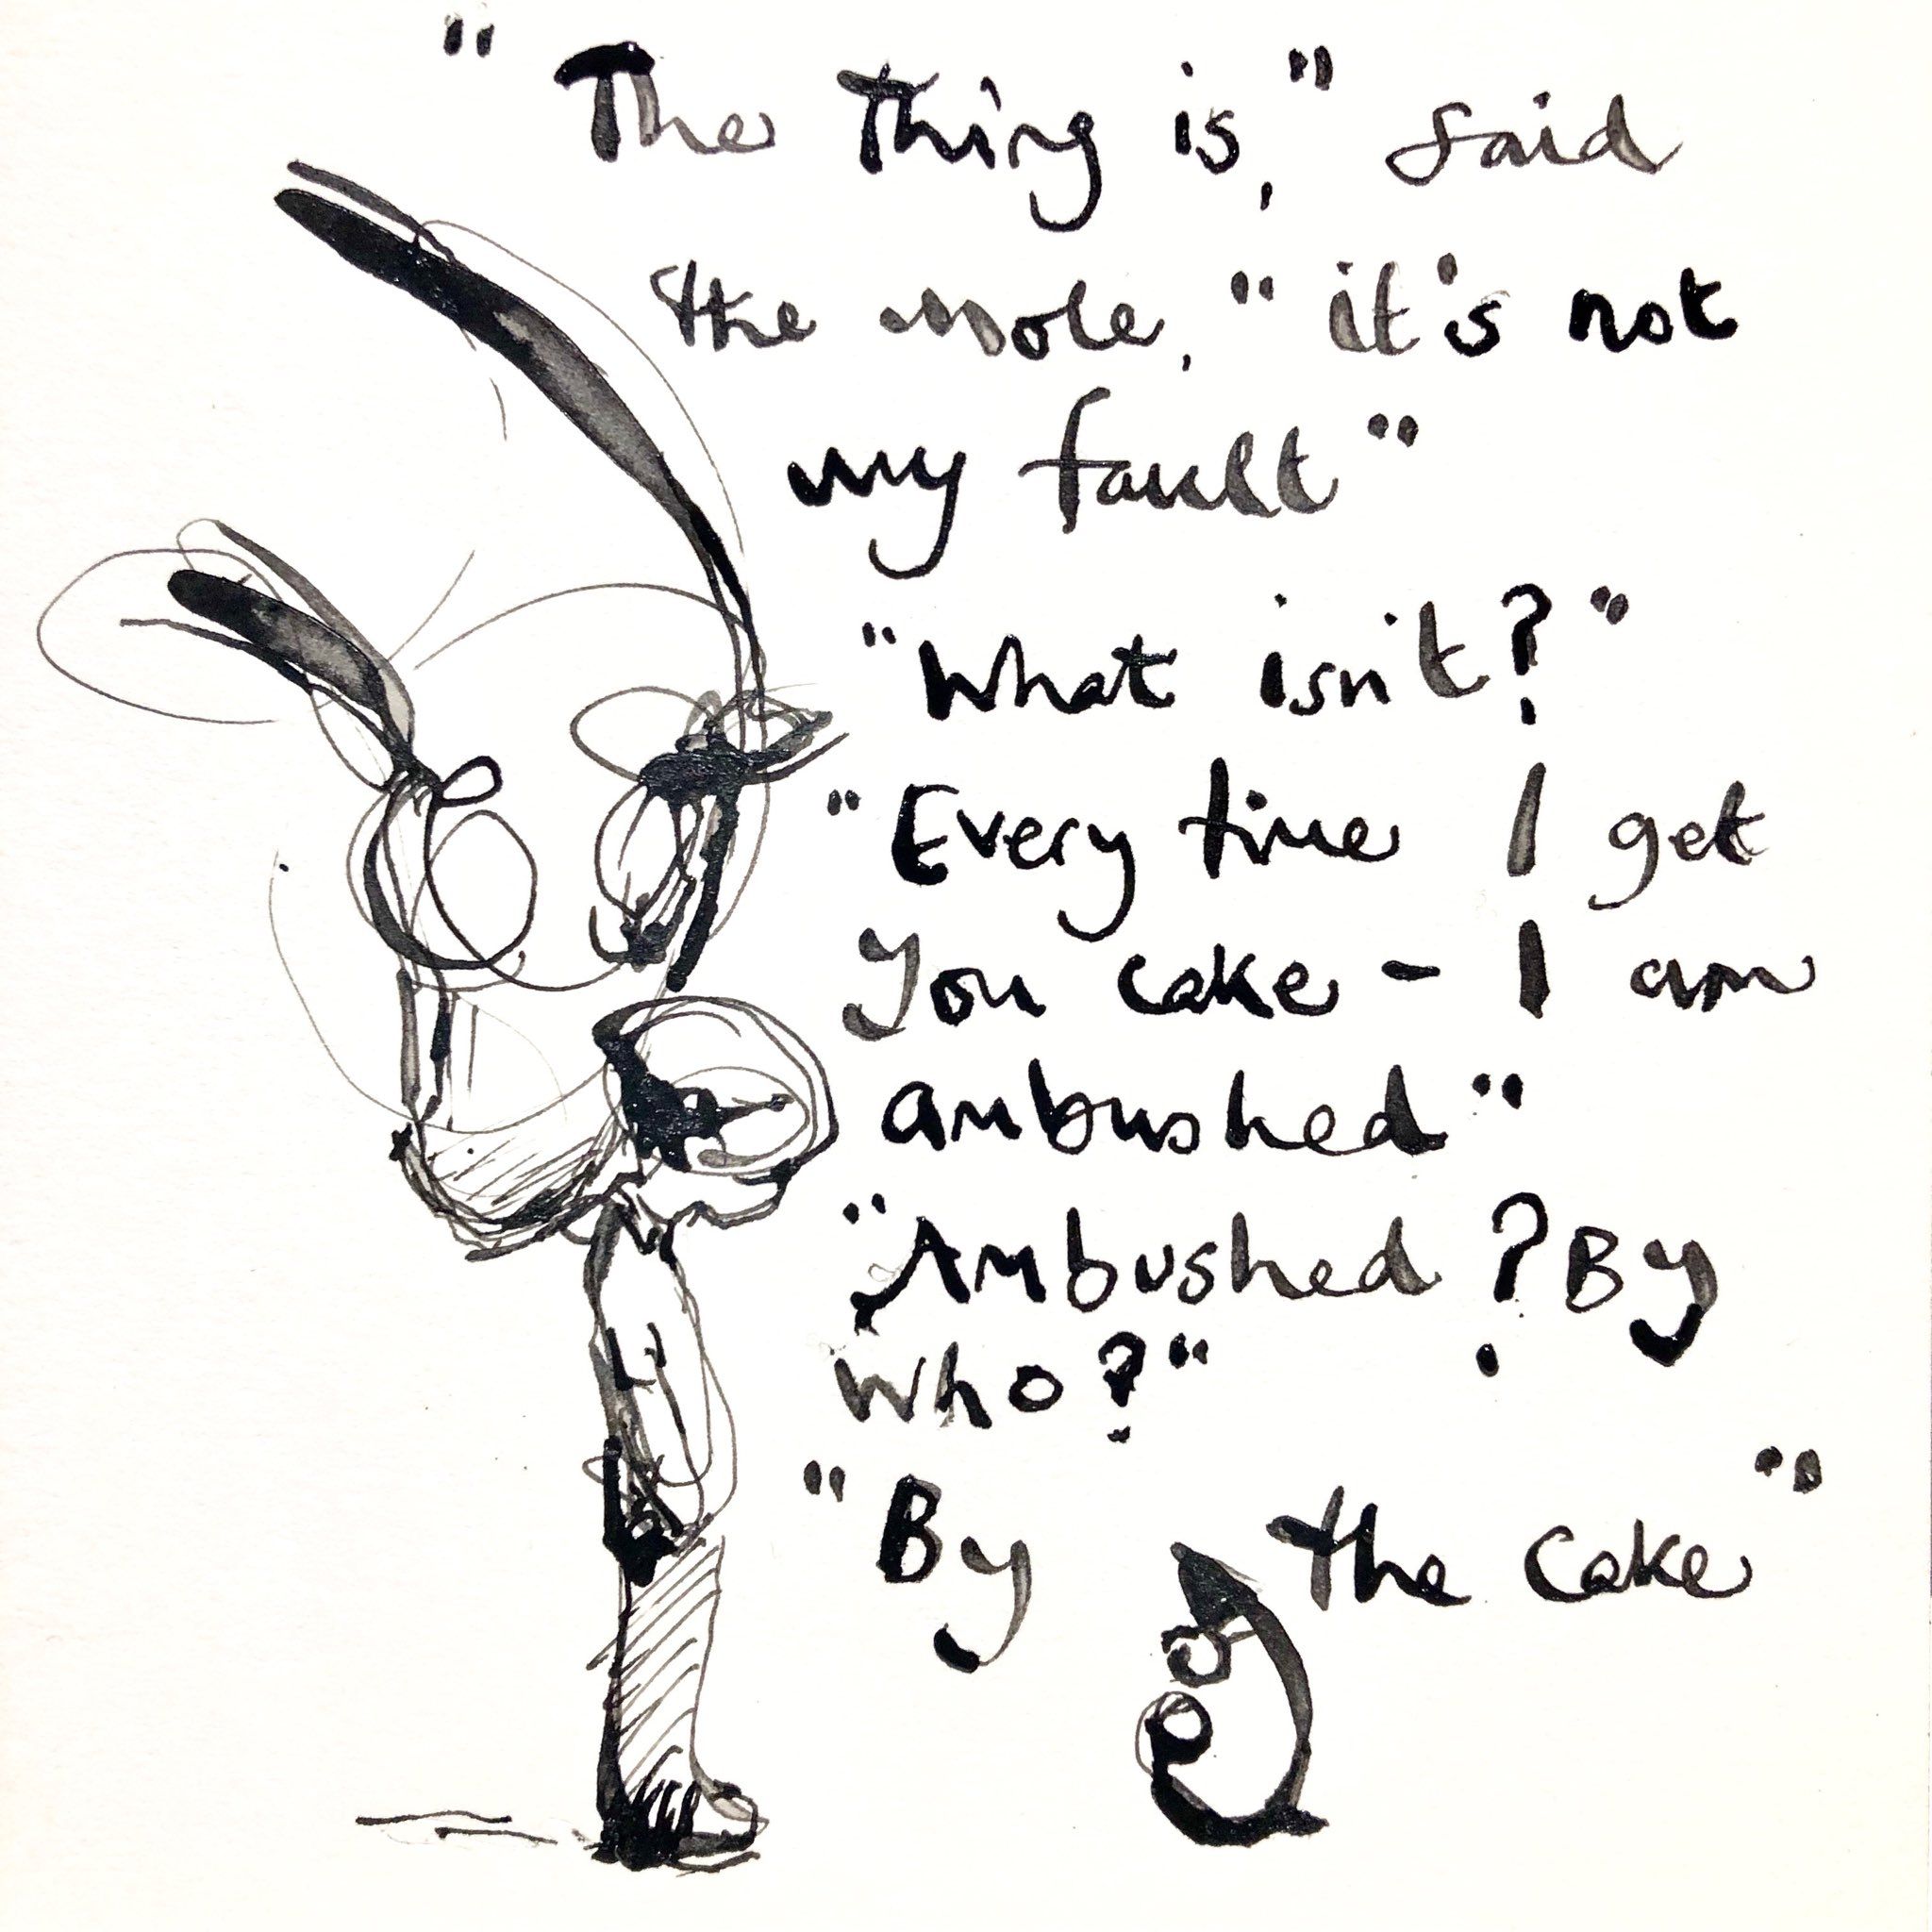 "The thing is," said
the mole, "it's not
my fault"
"What isn't?"
"Every time I get
you cake - I am
ambushed"
"Ambushed? By
who?"
"By the cake"